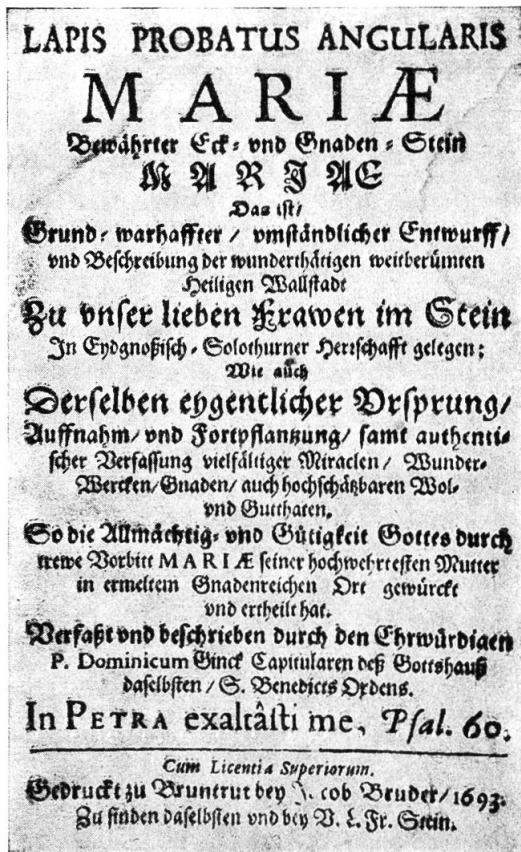 LAPIS PROBATUS ANGULARIS
MARIÆ
Bewährter Eck- vnd Gnaden-Stein
MARJAE
Das ist/
Grund-warhaffter/ vmständlicher Entwurff/
vnd Beschreibung der wunderthätigen weitberümten
Heiligen Wallstadt
Zu vnser lieben Frawen im Stein
In Eydgnoßisch-Solothurner Herrschafft gelegen;
Wie auch
Derselben eygentlicher Vrsprung/
Auffnahm/ vnd Fortpflantzung/ samt authenti-
scher Verfassung vielfältiger Miraclen/ Wunder-
Wercken/ Gnaden/ auch hochschätzbaren Wol-
vnd Gutthaten.
So die Allmächtig- vnd Gütigkeit Gottes durch
trewe Vorbitt MARIÆ seiner hochwehrtesten Mutter
in ermeltem Gnadenreichen Ort gewürckt
vnd ertheilt hat.
Verfaßt vnd beschrieben durch den Ehrwürdigen
P. Dominicum Ginck Capitularen deß Gottshauß
daselbsten/ S. Benedicts Ordens.
In PETRA exaltâsti me, Psal. 60.
Cum Licentia Superiorum.
Gedruckt zu Bruntrut bey J. cob Bruder/ 1693.
Zu finden daselbsten vnd bey V. L. Fr. Stein.